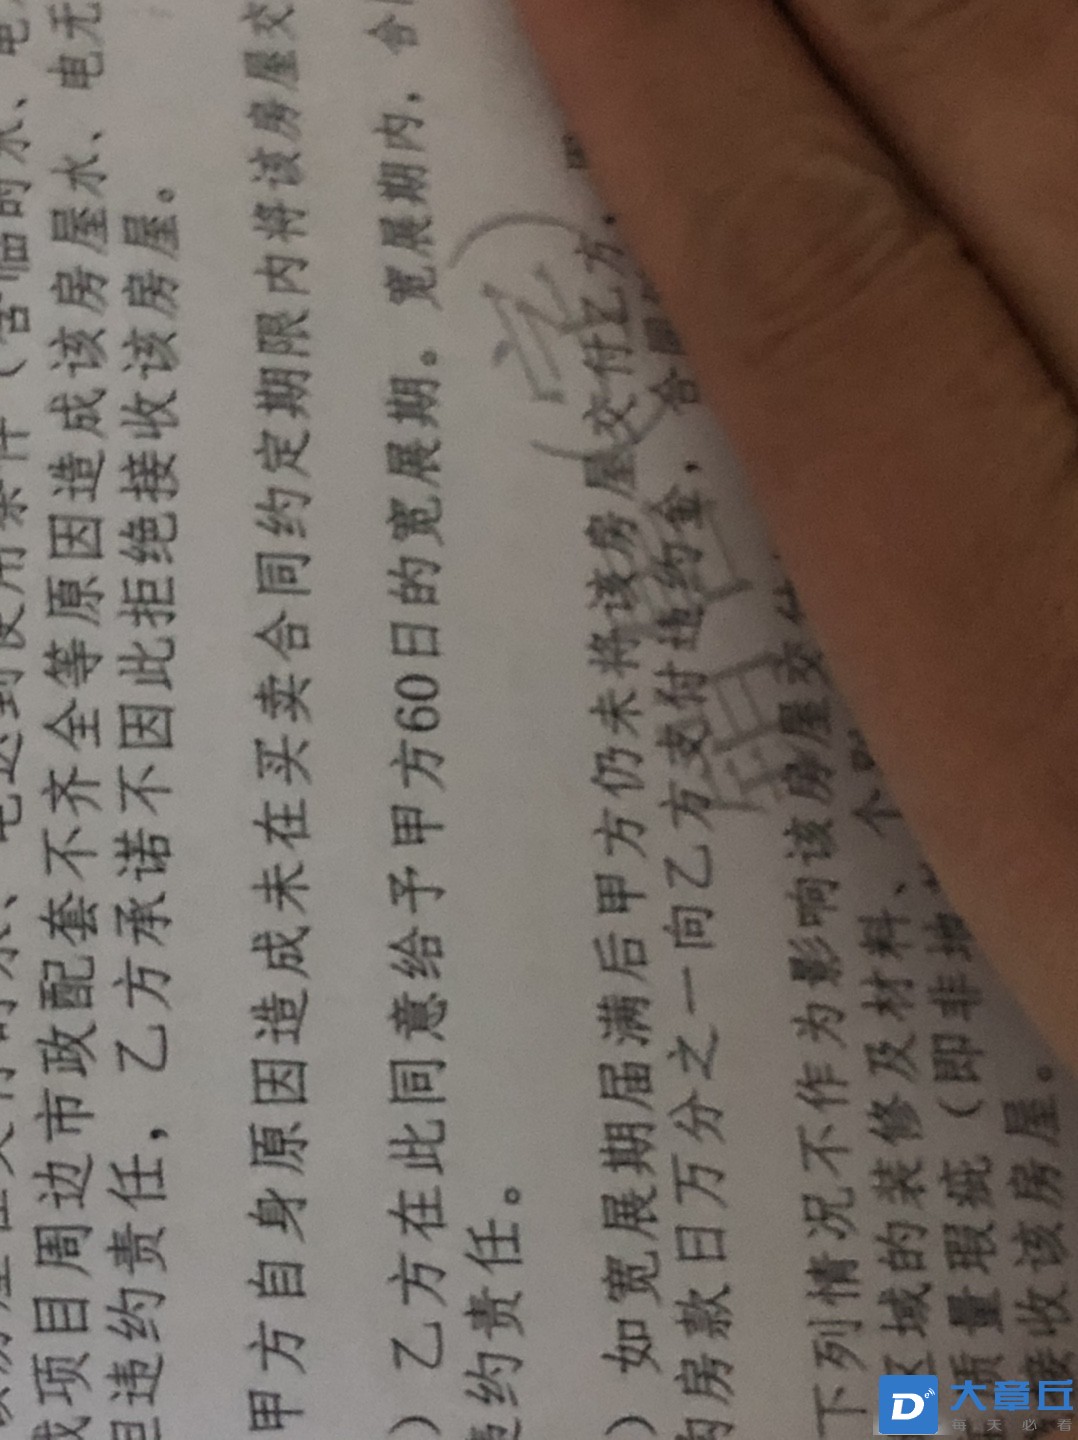 成项目周边市政配套不齐全等原因造成该房屋水、电无
担违约责任，乙方承诺不因此拒绝接收该房屋。
甲方自身原因造成未在买卖合同约定期限内将该房屋交
）乙方在此同意给予甲方60日的宽展期。宽展期内，合
违约责任。
）如宽展期届满后甲方仍未将该房屋交付乙方，
购房款日万分之一向乙方支付违约金，合同
下列情况不作为影响该房屋交付
区域的装修及材料、个别
质量瑕疵（即非地
接收该房屋。
（定）
大章丘
每天必看